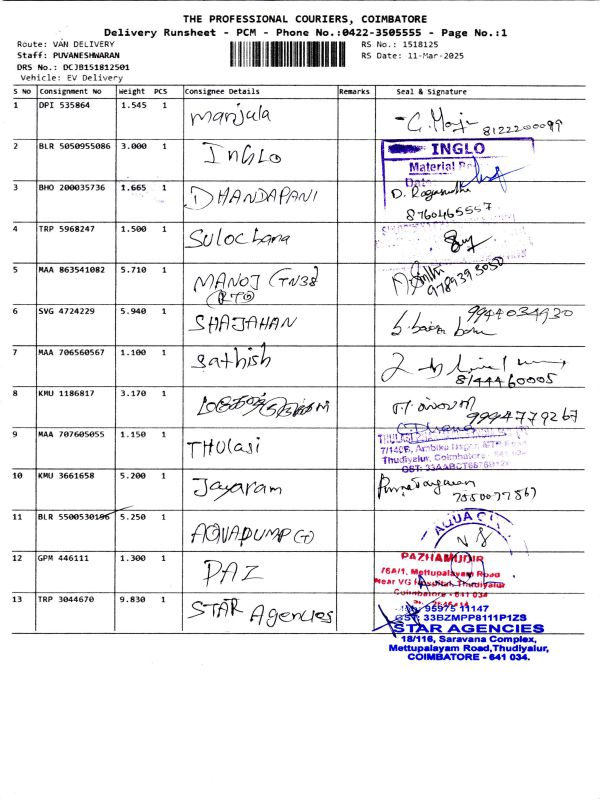 THE PROFESSIONAL COURIERS, COIMBATORE
Delivery Runsheet - PCM - Phone No.:0422-3505555 - Page No.:1
Route: VAN DELIVERY
RS No.: 1518125
Staff: PUVANESHWARAN
RS Date: 11-Mar-2025
DRS No.: DCJB151812501
Vehicle: EV Delivery
S No Consignment No Weight PCS Consignee Details Remarks Seal & Signature
1 DPI 535864 1.545 1 Manjula
8122200099
2 BLR 5050955086 3.000 1 INGLO INGLO
Material
Date
3 BHO 200035736 1.665 1 DHANDAPANI
8760465557
4 TRP 5968247 1.500 1 Sulochana
5 MAA 863541082 5.710 1 MANOJ (TN38
(RTO)
9789393050
6 SVG 4724229 5.940 1 SHAJAHAN 9944034930
7 MAA 706560567 1.100 1 Sathish
8144460005
8 KMU 1186817 3.170 1
9994779267
9 MAA 707605055 1.150 1 THULASI
Thudiyalur, Coimbatore
10 KMU 3661658 5.200 1 Jayaram
11 BLR 5500530196 5.250 1 AQUAPUMP (T) AQUA
12 GPM 446111 1.300 1 PAZ PAZHAMUDIR
76A/1, Mettupalayam Road
Near VG Hospital, Thudiyalur
Coimbatore - 641 034
13 TRP 3044670 9.830 1 STAR Agencies
95975 11147
GST: 33BZMPP8111P1ZS
STAR AGENCIES
18/116, Saravana Complex,
Mettupalayam Road,Thudiyalur,
COIMBATORE - 641 034.